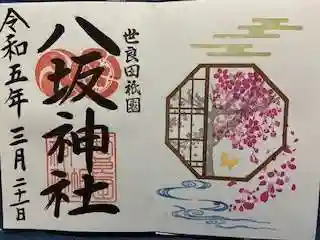 世良田祇園
八坂神社
令和五年三月二十一日